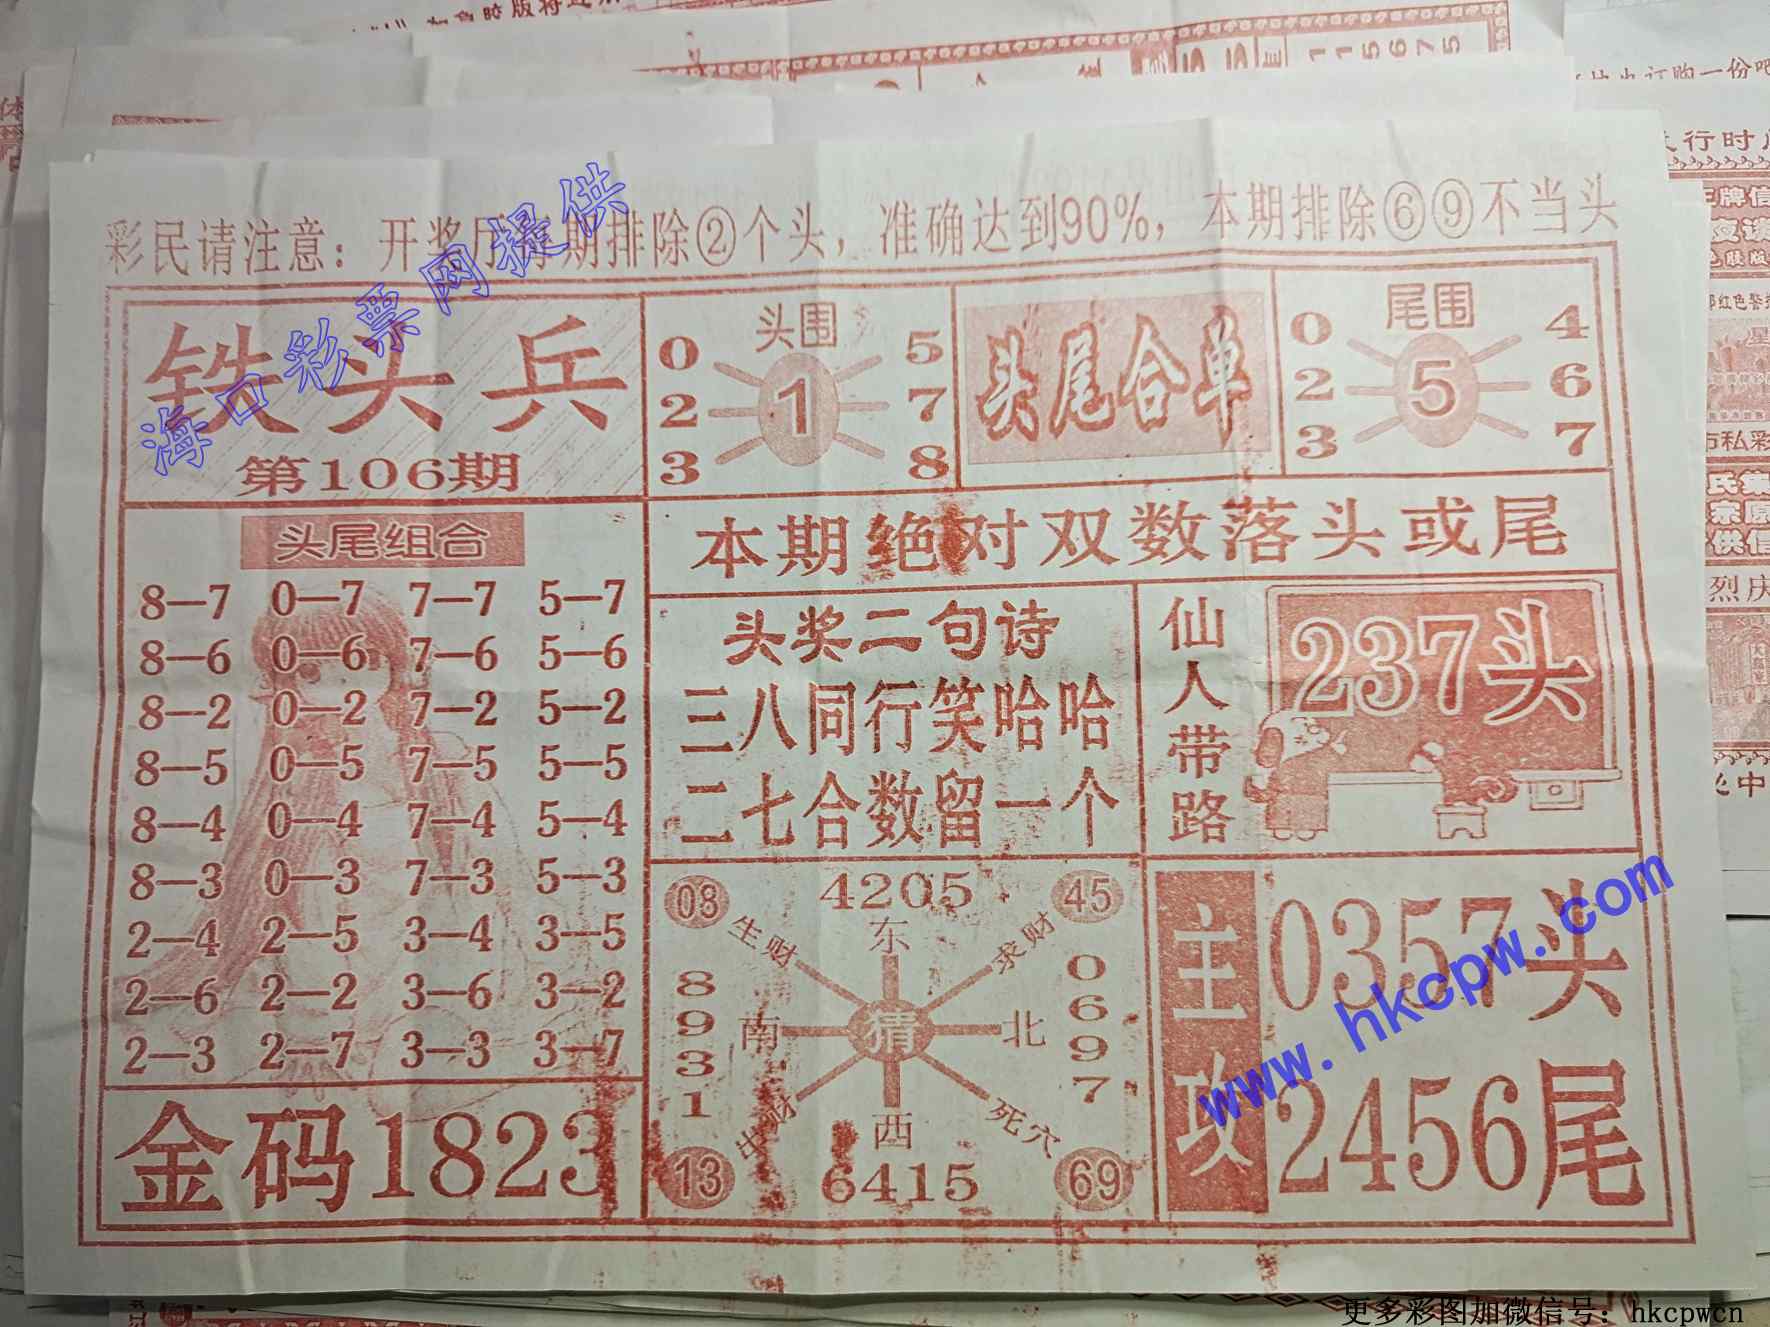 彩民请注意：开奖厅每期排除②个头，准确达到90%，本期排除⑥⑨不当头
海口彩票网提供
铁头兵
第106期
头围
0 2 3
1
5 7 8
头尾合单
尾围
0 2 3
5
4 6 7
头尾组合
8—7 0—7 7—7 5—7
8—6 0—6 7—6 5—6
8—2 0—2 7—2 5—2
8—5 0—5 7—5 5—5
8—4 0—4 7—4 5—4
8—3 0—3 7—3 5—3
2—4 2—5 3—4 3—5
2—6 2—2 3—6 3—2
2—3 2—7 3—3 3—7
金码1823
本期绝对双数落头或尾
头奖二句诗
三八同行笑哈哈
二七合数留一个
仙人带路
237头
08 4205 45
生财 东 求财
8931 南 猜 北 0697
出财 西 死穴
13 6415 69
主攻
0357头
2456尾
www.hkcpw.com
更多彩图加微信号：hkcpwcn